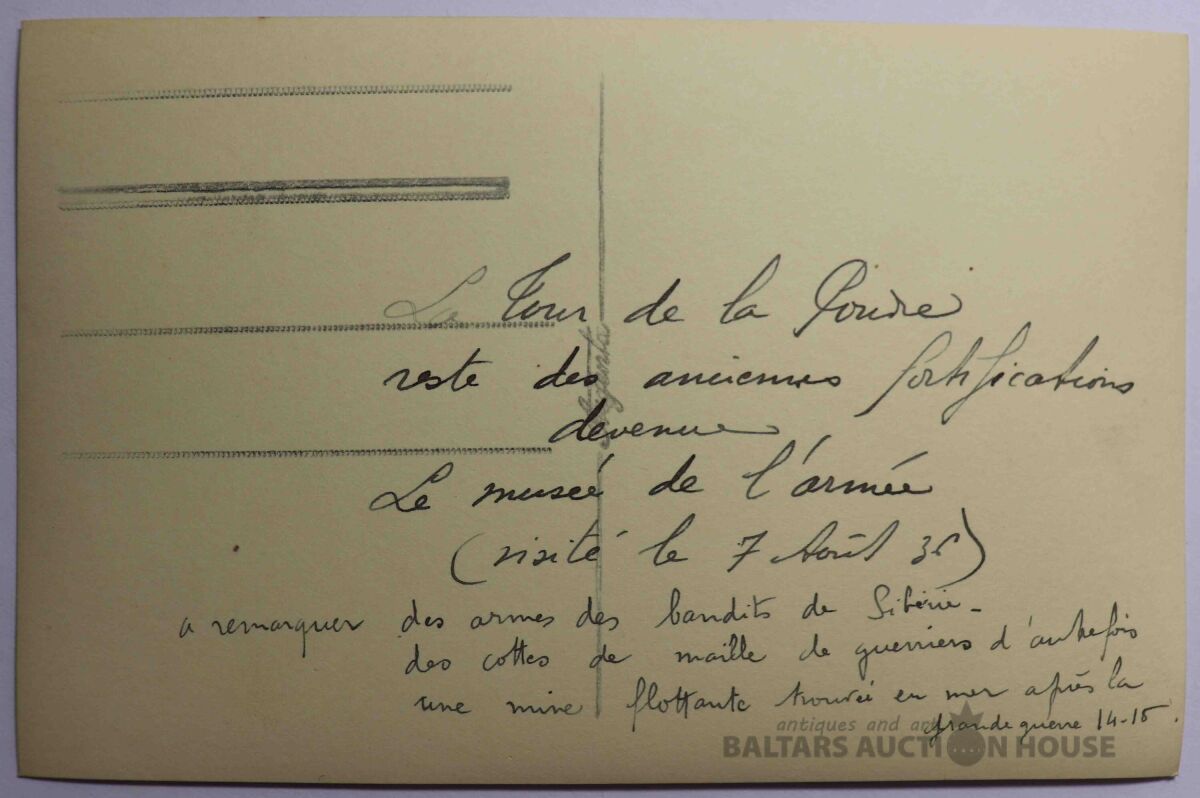 La Tour de la Poudre
reste des anciennes fortifications
devenue
Le musée de l'armée
(visité le 7 Août 35)
a remarquer des armes des bandits de Sibérie -
des cottes de maille de guerriers d'autrefois
une mine flottante trouvée en mer après la
grande guerre 14-15.
antiques and art
BALTARS AUCTION HOUSE